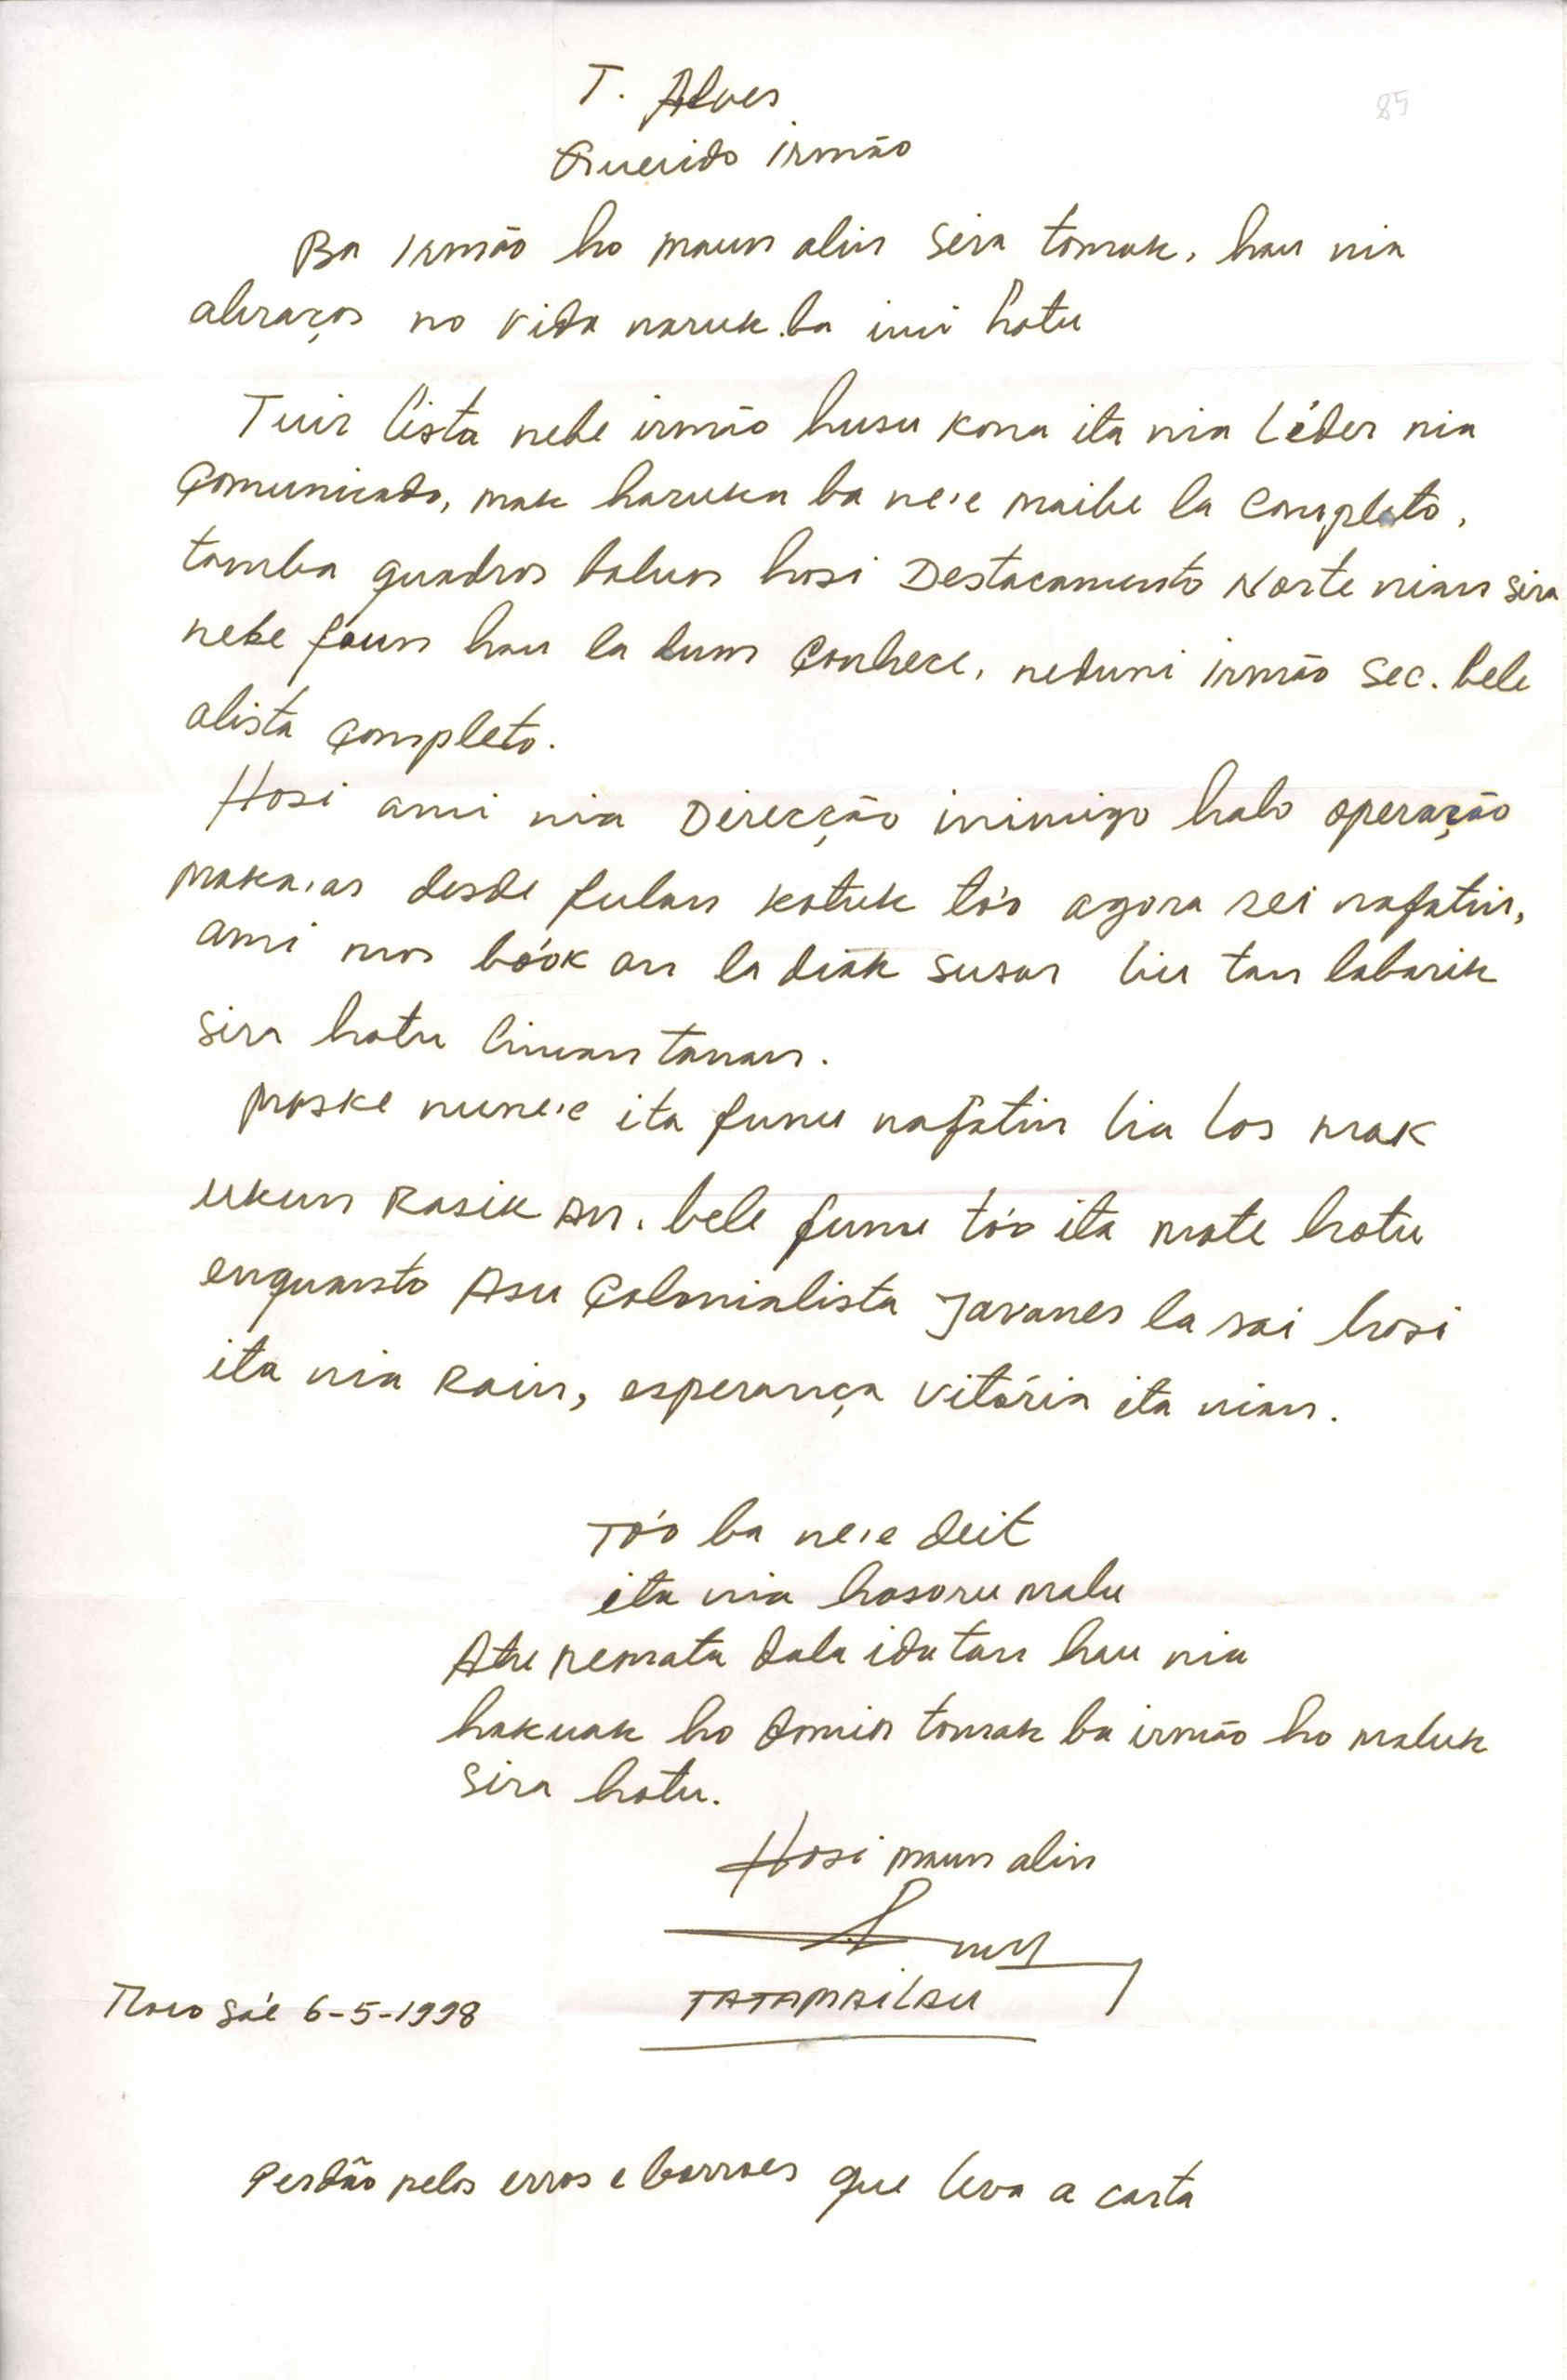 T. Alves
85
Querido irmão
Ba irmão ho maun alin sira tomak, hau nia
abraços no vida naruk ba imi hotu
Tuir lista nebe irmão husu kona ita nia Léder nia
Comunicado, mak haruka ba ne'e maibe la Completo,
tamba quadros balun hosi Destacamento Norte nian sira
nebe foun hau la dun conhece, neduni irmão Sec. bele
alista completo.
Hosi ami nia Direcção inimigo halo operação
maka'as desde fulan kotuk to'o agora sei nafatin,
ami mos bo'ok an la diak susar liu tan labarik
sira hotu liman tanan.
Maske nune'e ita funu nafatin lia los mak
Ukun Rasik An. bele funu to'o ita mate hotu
enquanto Asu Colonialista Javanes la sai hosi
ita nia Rain, esperança vitória ita nian.
To'o ba ne'e deit
ita nia hasoru malu
Atu remata dala ida tan hau nia
hakuak ho domin tomak ba irmão ho maluk
sira hotu.
Hosi maun alin
TATAMAILAU
6-5-1998
Perdão pelos erros e borroes que leva a carta